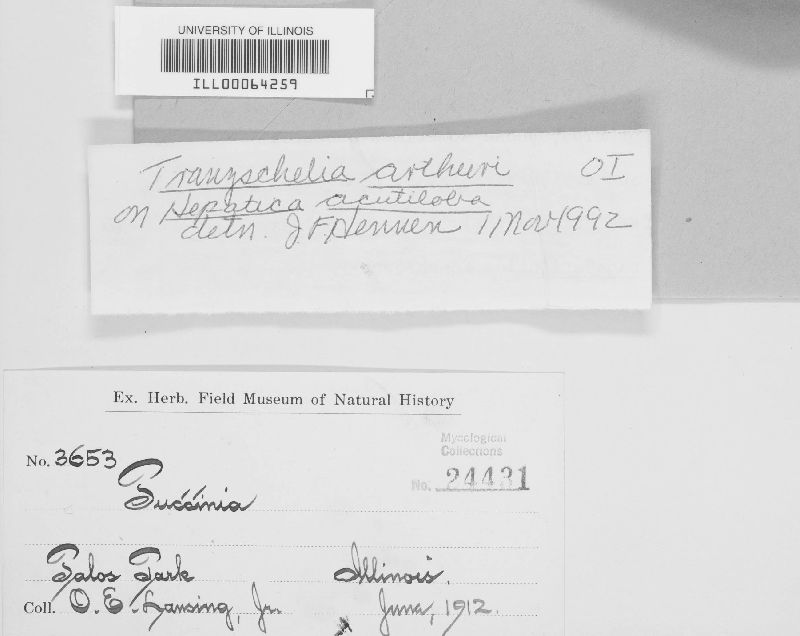 UNIVERSITY OF ILLINOIS
ILL00064259
Tranzschelia arthuri OI
on Hepatica acutiloba
detn. J F Hennen 1 Nov 1992
Ex. Herb. Field Museum of Natural History
Mycological
Collections
No. 3653
No. 24431
Puccinia
Palos Park Illinois.
Coll. O. E. Lansing, Jr. June, 1912.